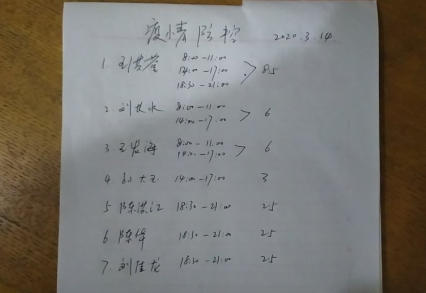 疫情防控 2020.3.14
1. 刘 8:00-11:00
14:00-17:00 > 8.5
18:30-21:00
2 刘 水 8:00-11:00
14:00-17:00 > 6
3 王 海 8:00-11:00
14:00-17:00 > 6
4 大 14:00-17:00 3
5 陈 江 18:30-21:00 2.5
6 陈伟 18:30-21:00 2.5
7. 刘佳龙 18:30-21:00 2.5